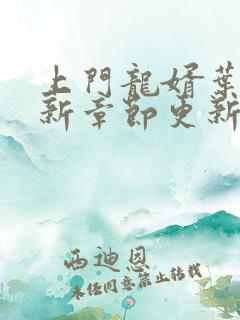 上門龍婿葉
新章節更新
西迪恩
未经同意禁止转载